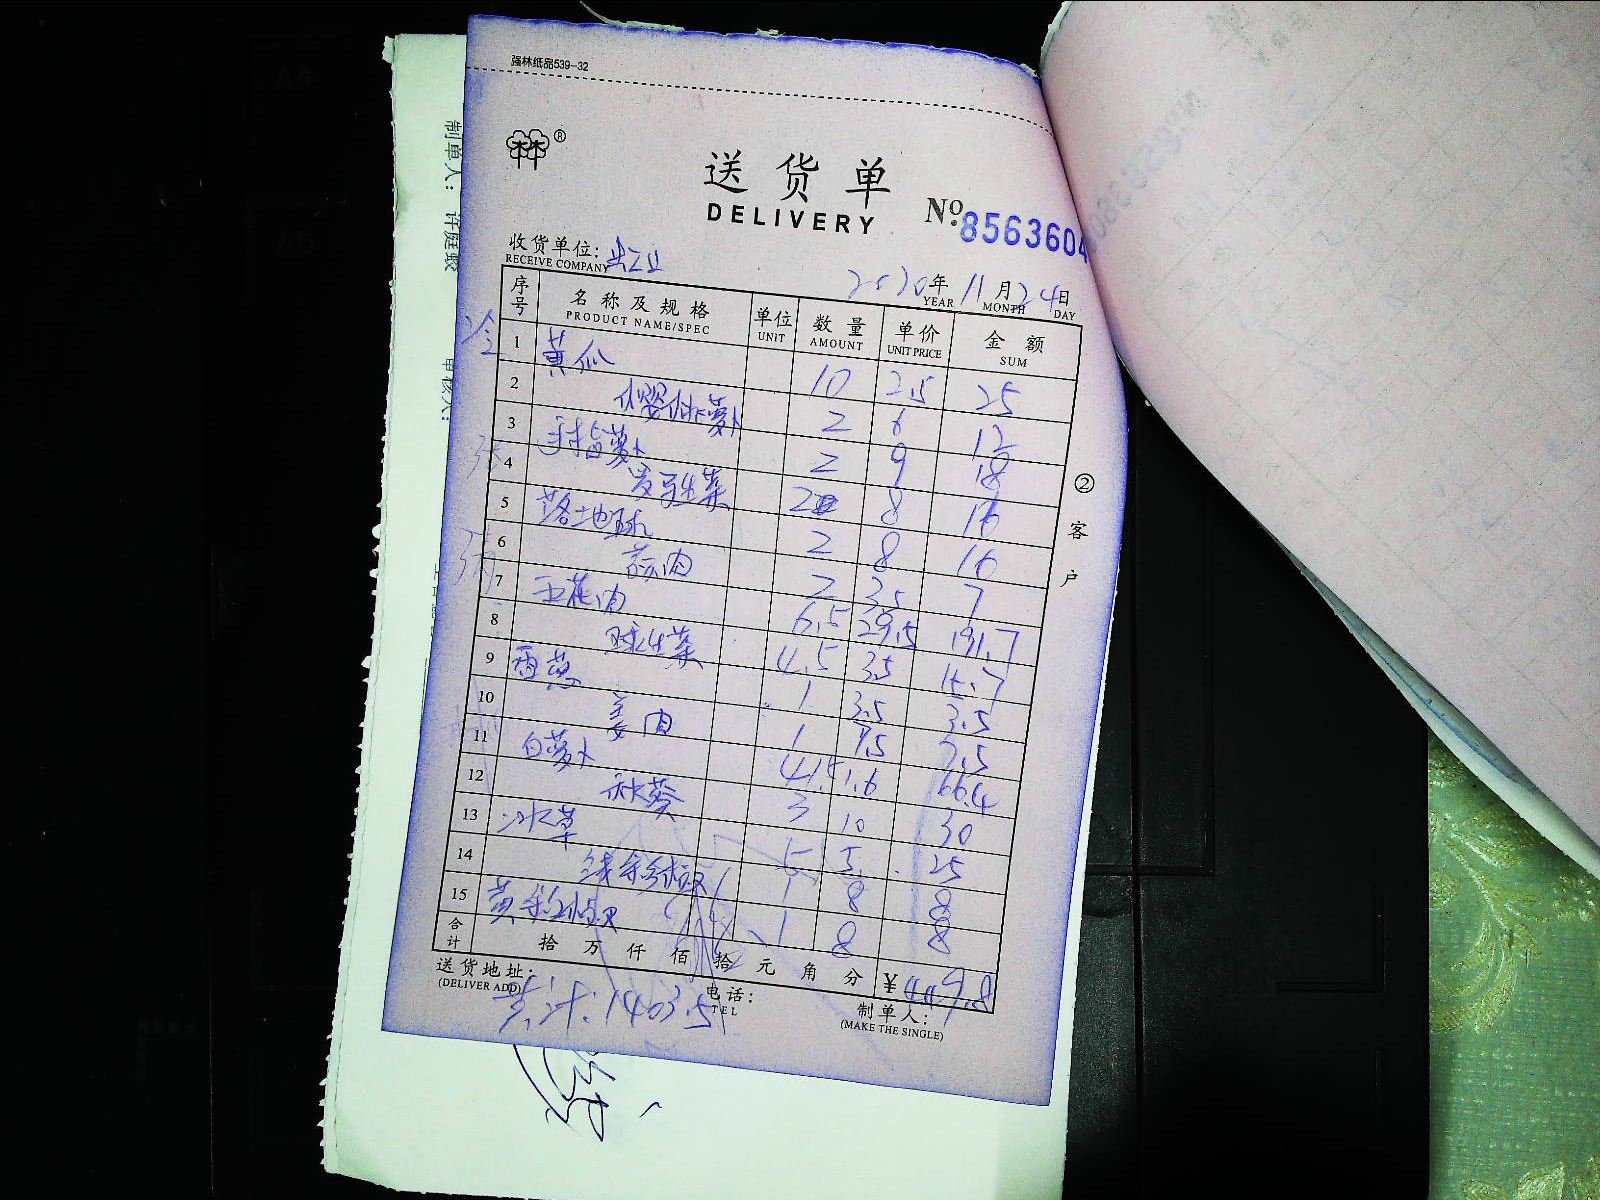 强林纸品539-32
林林®
送货单
DELIVERY
№ 8563604
收货单位:
RECEIVE COMPANY
2020年11月24日
YEAR MONTH DAY
序号 名称及规格 单位 数量 单价 金额
PRODUCT NAME/SPEC UNIT AMOUNT UNIT PRICE SUM
1 黄瓜 10 2.5 25
2 樱桃萝卜 2 6 12
3 手指萝卜 2 9 18
4 罗马生菜 2 8 16
5 落地球 2 8 16
6 蒜肉 2 3.5 7
7 五花肉 6.5 29.5 191.7
8 球生菜 4.5 3.5 15.7
9 香葱 1 3.5 3.5
10 姜肉 1 7.5 7.5
11 白萝卜 41.5 1.6 66.4
12 秋葵 3 10 30
13 冰草 5 5 25
14 1 8 8
15 黄 1 8 8
合计 拾 万 仟 佰 拾 元 角 分 ¥449.8
送货地址:
(DELIVER ADD)
电话:
TEL
制单人:
(MAKE THE SINGLE)
共计:1403.5
②客户
制单人: 许庭蛟
审核人: